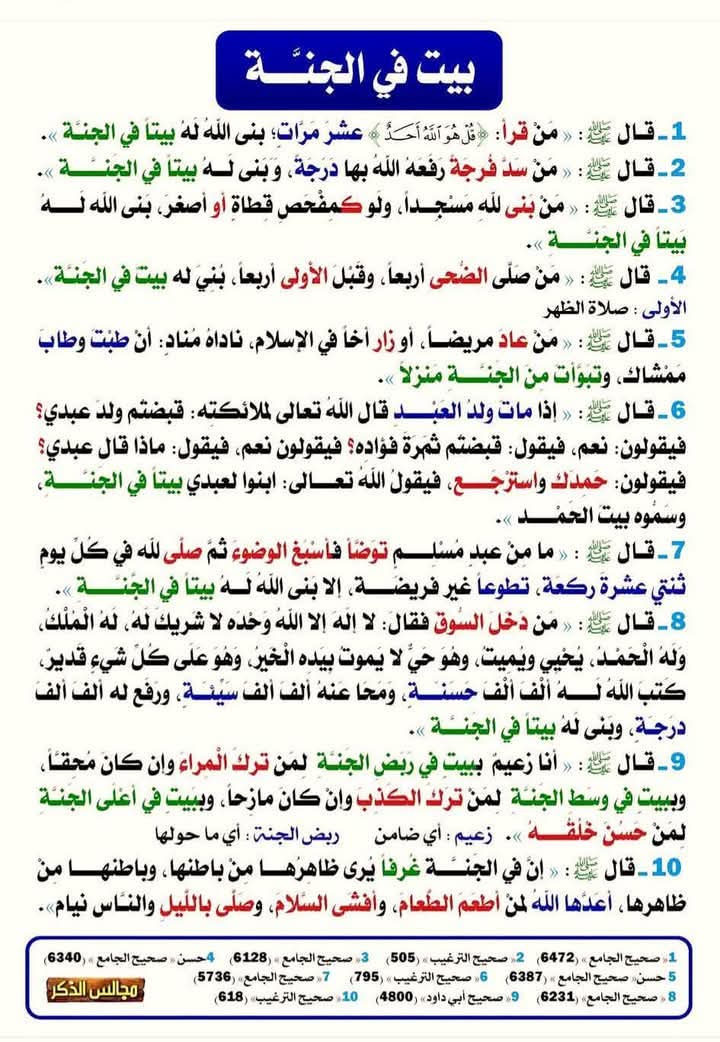 بيت في الجنَّـــة
1ـ قـال ﷺ : « مَنْ قرأ: ﴿قُلْ هُوَ ٱللَّهُ أَحَدٌ﴾ عشرَ مَرَّاتٍ؛ بنى اللهُ لهُ بيتاً في الجنَّة ».
2ـ قـال ﷺ : « مَن سَدَّ فُرجةً رَفعهُ اللهُ بها دَرجةً، وَبَنى لَـهُ بيتاً في الجنَّـــة ».
3ـ قـال ﷺ : « مَن بَنى للهِ مَسْجِداً، ولَو كَمِفْحَصِ قَطاةٍ أو أصغرَ، بَنى الله لَـــهُ
بَيتاً في الجَنَّــــة ».
4ـ قال ﷺ : « مَنْ صَلَّى الضُّحى أربعاً، وقَبْلَ الأولى أربعاً، بُنِيَ له بيت في الجَنَّة».
الأولى : صلاة الظهر
5ـ قـال ﷺ : « مَنْ عادَ مريضـاً، أو زار أخاً في الإسلام، ناداهُ مُنادٍ: أنْ طِبْتَ وطابَ
مَمْشاك، وتبوَّأت مِنَ الجَنَّـــةِ مَنزلاً ».
6ـ قـال ﷺ : « إذا ماتَ ولدُ العَبْـــدِ قال اللهُ تعالى لملائكتِه: قبضتُم ولدَ عبدي؟
فيقولون: نعم، فيقول: قبضتُم ثمَرةَ فُؤاده؟ فيقولون نعم، فيقول: ماذا قال عبدي؟
فيقولون: حَمِدَك واستَرْجَـــع، فيقولُ اللهُ تعـــالى: ابنوا لعبدي بيتاً في الجنَّـــة،
وسَمُّوه بيتَ الحَمْـــد ».
7ـ قـال ﷺ : « ما مِنْ عبدٍ مُسْلِـــمٍ توَضَّأ فأسْبَغ الوضوءَ ثمَّ صلَّى لله في كُلِّ يومٍ
ثنتي عشرةَ ركعَة، تطوعاً غير فريضـــة، إلا بَنى اللهُ لَـهُ بيتاً في الجَّنَّـــة ».
8ـ قـال ﷺ : « مَن دَخل السُوقَ فقالَ: لا إلَهَ إلا اللهُ وَحْدَه لا شريكَ لَهُ، لَهُ الْمُلْكُ،
وَلَهُ الْحَمْـدُ، يُحْيي ويُميتُ، وهوَ حَيٌّ لا يموتُ بيَدِه الْخَيرُ، وهوَ عَلَى كُلِّ شيءٍ قديرٌ،
كتبَ اللهُ لـــهُ ألْفَ ألْفِ حَسَنـــةٍ، وَمَحَا عنهُ ألفَ ألفَ سَيِّئـــةٍ، ورَفعَ له ألفَ ألفَ
درجـةٍ، وبَنى لَهُ بيتاً في الجنَّـــة ».
9ـ قـال ﷺ : « أنا زعيمٌ ببيتٍ في رَبَضِ الجنَّةِ لِمَن تركَ المراءَ وإن كانَ مُحِقَّـاً،
وببيتٍ في وسَطِ الجنَّةِ لِمَنْ تركَ الكذبَ وإنْ كانَ مازحاً، وببيتٍ في أعْلَى الجنَّةِ
لِمَنْ حَسُنَ خُلُقُـــهُ ». زعيم : أي ضامن ربض الجنة : أي ما حولها
10ـ قال ﷺ : « إنَّ في الجنَّـــة غُرفاً يُرى ظاهرُهـا مِنْ باطنها، وباطنهـــا مِنْ
ظاهرها، أعدَّها اللهُ لمنْ أطعَمَ الطَّعامَ، وأفشى السَّلامَ، وصلَّى بالَّليلِ والنَّاس نيام».
1« صحيح الجامع » (6472) 2« صحيح الترغيب » (505) 3« صحيح الجامع » (6128) 4حسن« صحيح الجامع » (6340)
5 حسن« صحيح الجامع » (6387) 6« صحيح الترغيب » (795) 7« صحيح الجامع» (5736)
8 « صحيح الجامع» (6231) 9« صحيح أبي داود» (4800) 10« صحيح الترغيب» (618)
مجالس الذكر